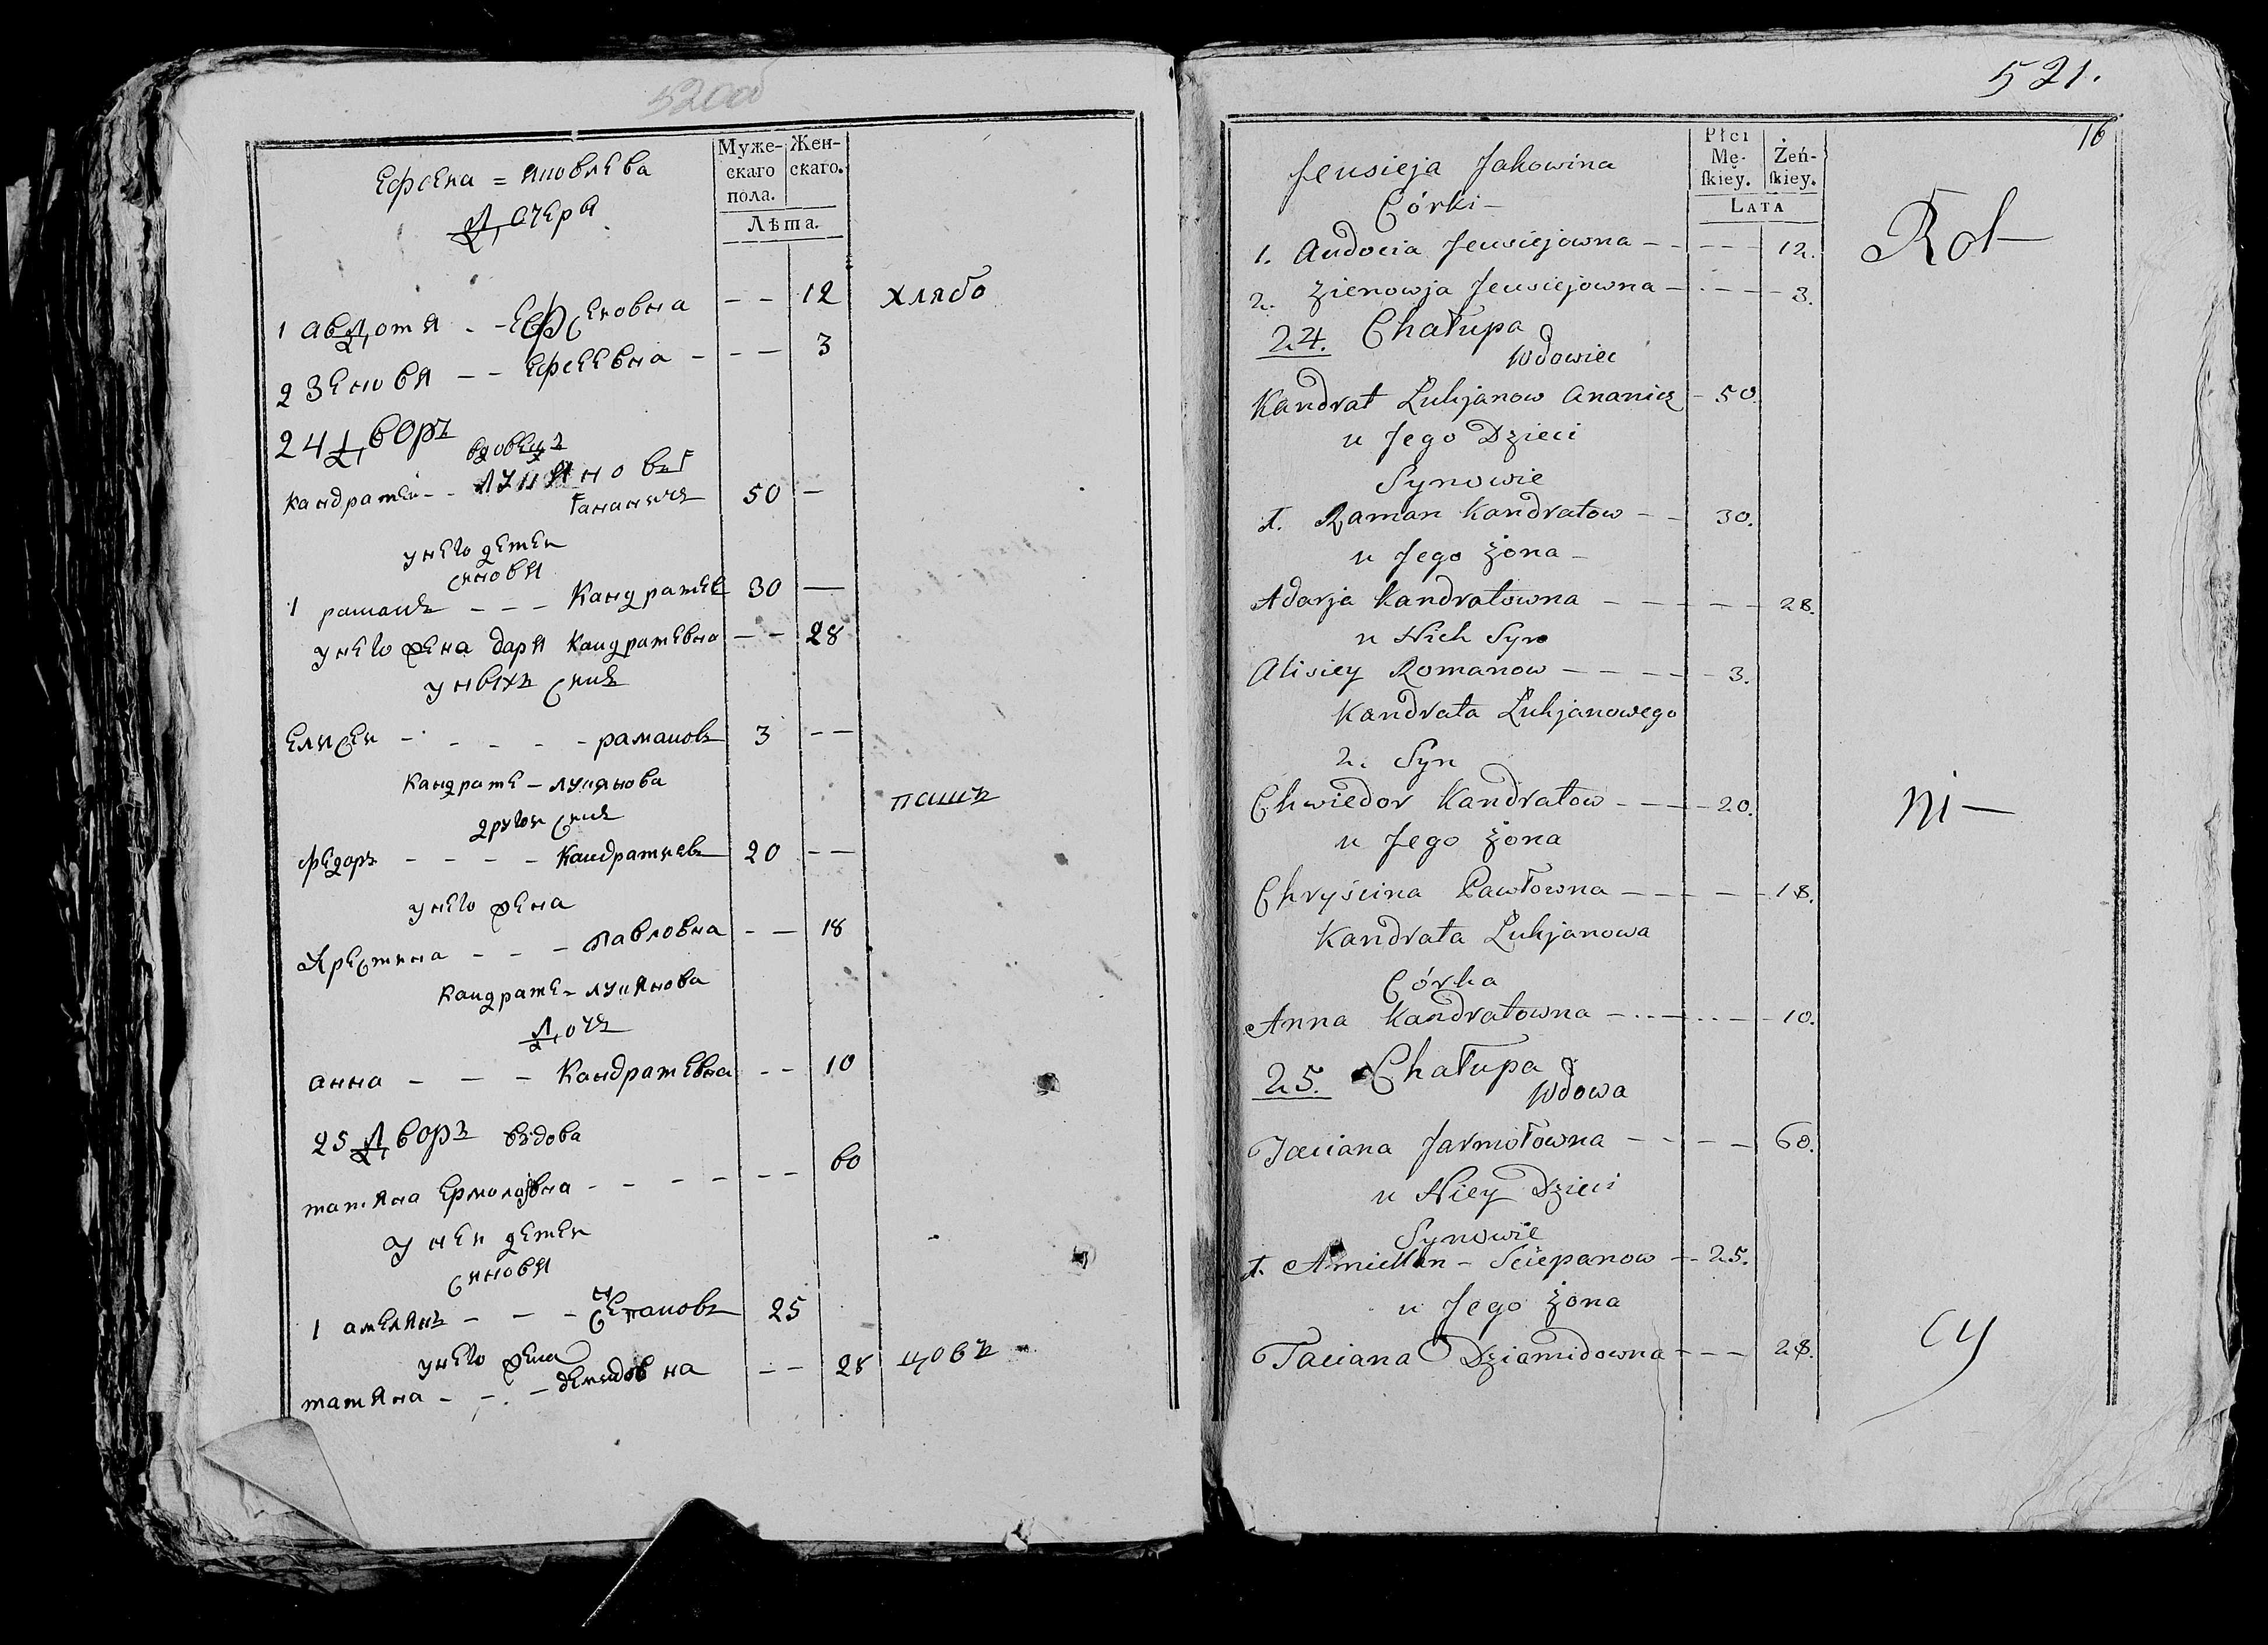 520об
Муже-
скаго
пола.
Жен-
скаго.
Лѣта.
Ефсея = яковлева
Дочеря
1 авдотя - - Ефсеиовна - - 12 хлябо
2 Зеновя - - Ефсеевна - - - 3
24 Дворъ
вдовецъ
кандратеи - - лукяновъ
ананичъ 50 -
унего детеи
синовя
1 раманъ - - - Кандратев 30 -
унего жена даря Кандратевна - - 28
унихъ синъ
Елисеи - - - - - рамановъ 3 - -
Кандрате - лукянова
другои синъ пашъ
Федоръ - - - - Кандратиевъ 20 - -
унего жена
Хрестина - - - Павловна - - 18
Кандрате = лукянова
Дочъ
анна - - - Кандратевна - - 10
25 Дворъ въдова
татяна Ермоловна - - - - - - 60
У неи детеи
синовя
1 амелянъ - - - Степановъ 25
унего жена
татяна - - - демидовна - - 28 цовъ
521.
16
Płci
Mę-
skiey.
Żeń-
skiey.
LATA
Jeusieja Jakowina
Córki -
1. Audocia Jeusiejowna - - - - - 12. Rol-
2. Zienowja Jeusiejowna - - - - 3.
24. Chałupa
Wdowiec
Kandrat Łukjanow Ananicz - 50.
u Jego Dzieci
Synowie
1. Raman Kandratow - - 30.
u Jego żona -
Adarja Kandratowna - - - - - 28.
u Nich Syn
Alisiey Romanow - - - - - 3.
Kandrata Łukjanowego
2. Syn
Chwiedor Kandratow - - - - 20. ni-
u Jego żona
Chryścina Pawłowna - - - - - 18.
Kandrata Łukjanowa
Córka
Anna Kandratowna - - - - - 10.
25. Chałupa
Wdowa
Taciana Jarmołowna - - - - 60.
u Niey Dzieci
Synowie
1. Amiellan - Sciepanow - - 25.
u Jego żona
Taciana Dziamidowna - - - 28. cy